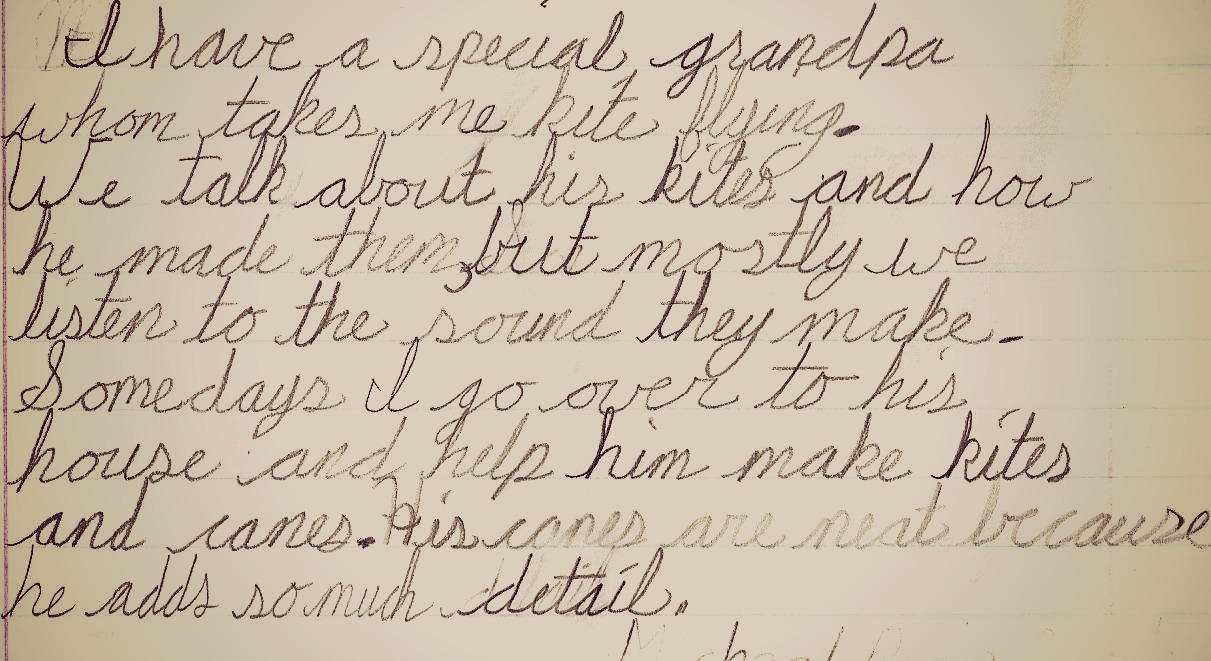 I have a special grandpa
whom takes me kite flying.
We talk about his kites and how
he made them, but mostly we
listen to the sound they make.
Somedays I go over to his
house and help him make kites
and canes. His canes are neat because
he adds so much detail.